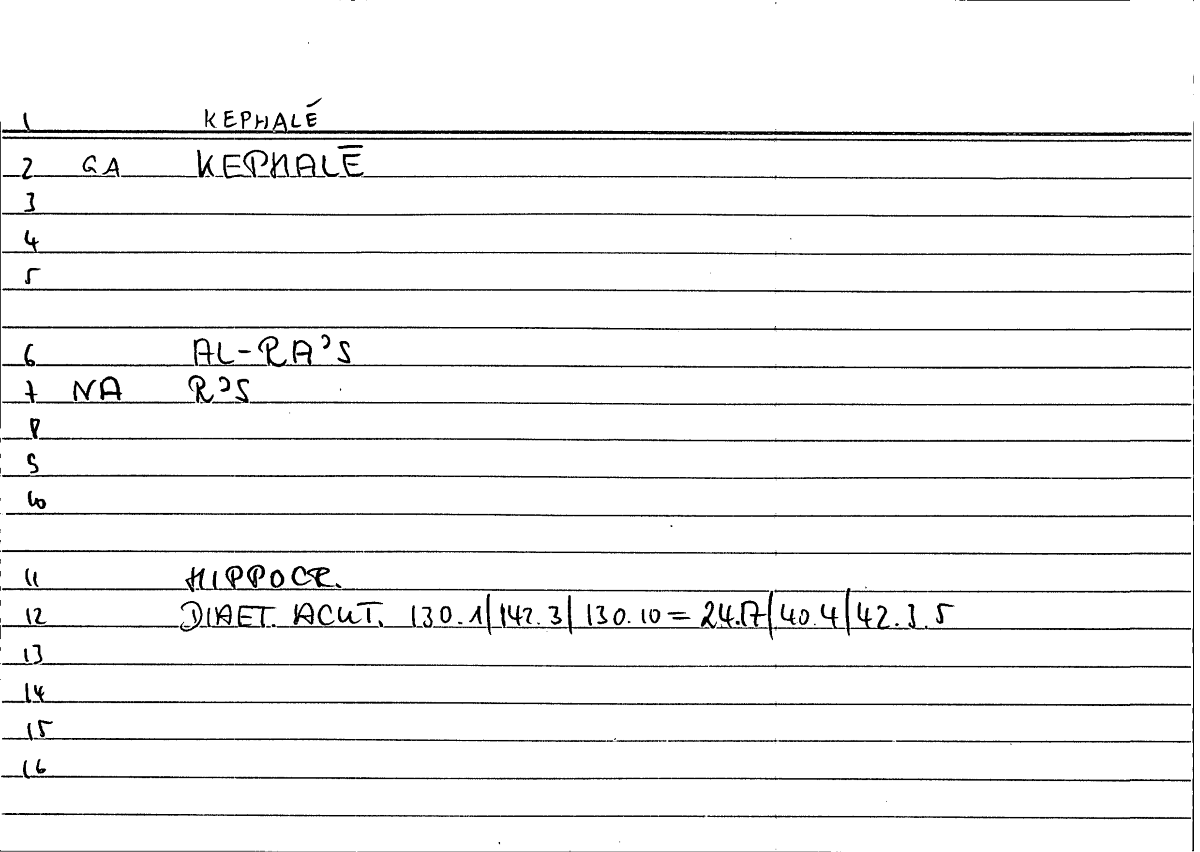 1 KEPHALÉ
2 GA KEPHALĒ
3
4
5
6 AL-RAʾS
7 NA RʾS
8
9
10
11 HIPPOCR.
12 DIAET. ACUT. 130.1|142.3|130.10 = 24.17|40.4|42.3.5
13
14
15
16